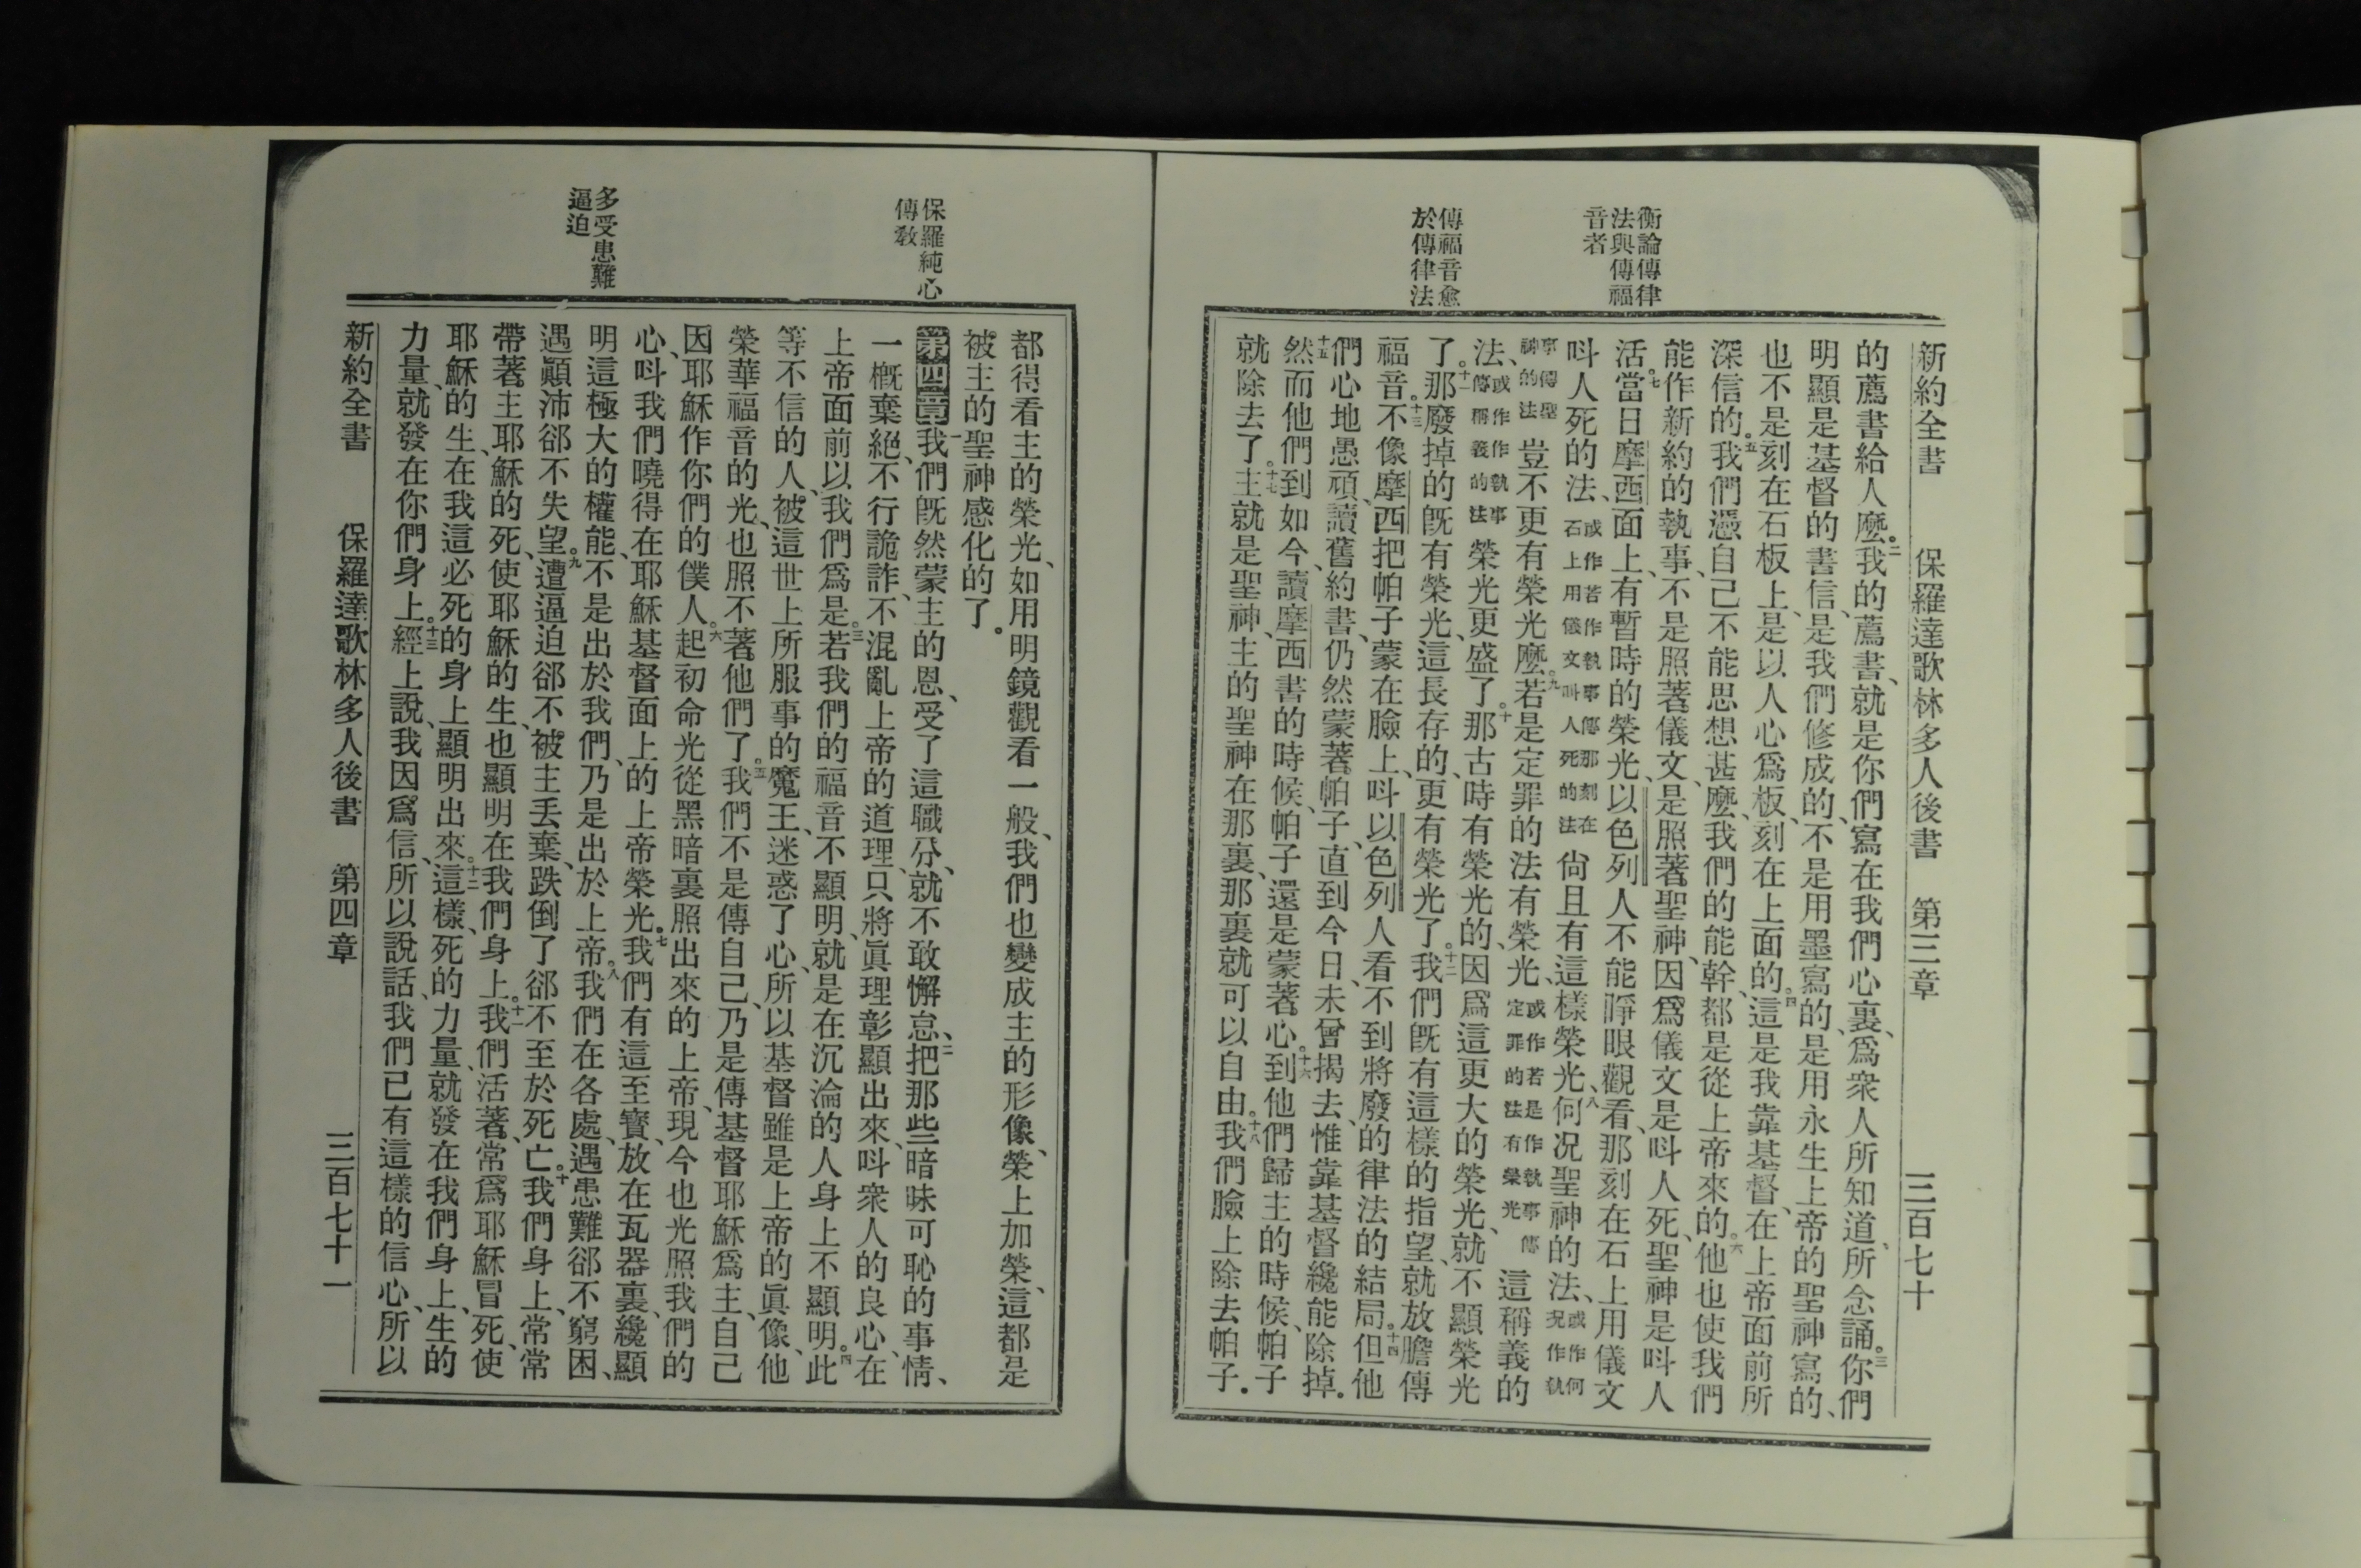 新約全書 保羅達歌林多人後書 第三章 三百七十
衡論傳律
法與傳福
音者
傳福音愈
於傳律法
的薦書給人麼。二我的薦書、就是你們寫在我們心裏、爲衆人所知道、所念誦。三你們
明顯是基督的書信、是我們修成的、不是用墨寫的、是用永生上帝的聖神寫的、
也不是刻在石板上、是以人心爲板、刻在上面的。四這是我靠基督、在上帝面前所
深信的。五我們憑自己不能思想甚麼、我們的能幹、都是從上帝來的。六他也使我們
能作新約的執事、不是照著儀文、是照著聖神、因爲儀文是呌人死、聖神是呌人
活。七當日摩西面上、有暫時的榮光、以色列人不能睜眼觀看、那刻在石上用儀文
呌人死的法、或作若作執事傳那刻在石上用儀文呌人死的法 尙且有這樣榮光、八何况聖神的法、或作何况作執
事傳聖神的法 豈不更有榮光麼。九若是定罪的法有榮光、或作若是作執事傳定罪的法有榮光 這稱義的
法、或作作執事傳稱義的法 榮光更盛了。十那古時有榮光的、因爲這更大的榮光、就不顯榮光
了。十一那廢掉的旣有榮光、這長存的、更有榮光了。十二我們旣有這樣的指望、就放膽傳
福音。十三不像摩西把帕子蒙在臉上、呌以色列人看不到將廢的律法的結局。十四但他
們心地愚頑、讀舊約書、仍然蒙著帕子、直到今日、未曾揭去、惟靠基督纔能除掉。
十五然而他們到如今、讀摩西書的時候、帕子還是蒙著心。十六到他們歸主的時候、帕子
就除去了。十七主就是聖神、主的聖神在那裏、那裏就可以自由。十八我們臉上除去帕子、
保羅純心
傳敎
多受患難
逼迫
都得看主的榮光、如用明鏡觀看一般、我們也變成主的形像、榮上加榮、這都是
被主的聖神感化的了。
第四章 一我們旣然蒙主的恩、受了這職分、就不敢懈怠、二把那些暗昧可恥的事情、
一槪棄絕、不行詭詐、不混亂上帝的道理、只將眞理彰顯出來、呌衆人的良心、在
上帝面前以我們爲是。三若我們的福音不顯明、就是在沉淪的人身上不顯明。四此
等不信的人、被這世上所服事的魔王、迷惑了心、所以基督雖是上帝的眞像、他
榮華福音的光、也照不著他們了。五我們不是傳自己、乃是傳基督耶穌爲主、自己
因耶穌作你們的僕人。六起初命光從黑暗裏照出來的上帝、現今也光照我們的
心、呌我們曉得在耶穌基督面上的上帝榮光。七我們有這至寶、放在瓦器裏、纔顯
明這極大的權能、不是出於我們、乃是出於上帝。八我們在各處、遇患難卻不窮困、
遇顚沛卻不失望。九遭逼迫卻不被主丟棄、跌倒了卻不至於死亡。十我們身上、常常
帶著主耶穌的死、使耶穌的生、也顯明在我們身上。十一我們活著、常爲耶穌冒死、使
耶穌的生、在我這必死的身上顯明出來。十二這樣、死的力量、就發在我們身上、生的
力量、就發在你們身上。十三經上說、我因爲信、所以說話、我們已有這樣的信心、所以
新約全書 保羅達歌林多人後書 第四章 三百七十一